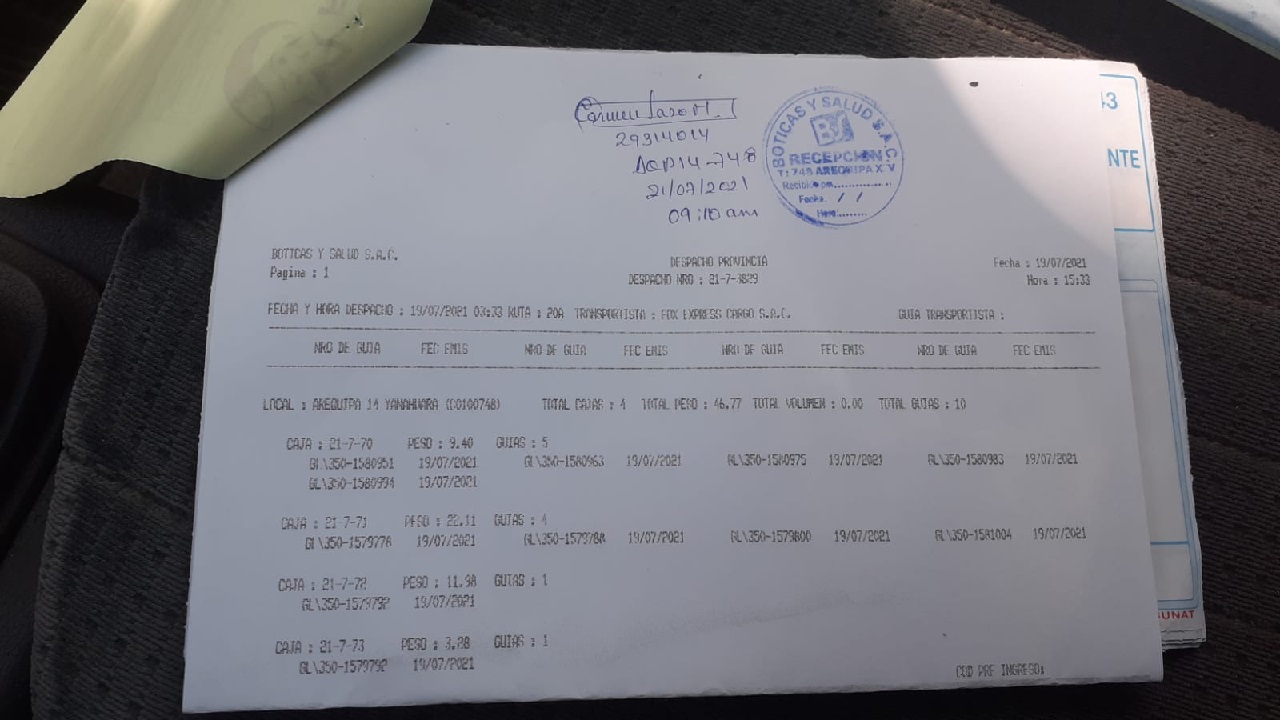 29314014
AQP14-748
21/07/2021
09:10 am
BOTICAS Y SALUD S.A.C
RECEPCION
T: 748 AREQUIPA XIV
Recibido por
Fecha / /
Hora
43
NTE
BOTICAS Y SALUD S.A.C.
Pagina : 1
DESPACHO PROVINCIA
DESPACHO NRO : 21-7-3829
Fecha : 19/07/2021
Hora : 15:33
FECHA Y HORA DESPACHO : 19/07/2021 03:33 RUTA : 20A TRANSPORTISTA : FOX EXPRESS CARGO S.A.C. GUIA TRANSPORTISTA :
NRO DE GUIA FEC EMIS NRO DE GUIA FEC EMIS NRO DE GUIA FEC EMIS NRO DE GUIA FEC EMIS
LOCAL : AREQUIPA 14 YANAHUARA (00100748) TOTAL CAJAS : 4 TOTAL PESO : 46.77 TOTAL VOLUMEN : 0.00 TOTAL GUIAS : 10
CAJA : 21-7-70 PESO : 9.40 GUIAS : 5
GL\350-1580951 19/07/2021 GL\350-1580963 19/07/2021 GL\350-1580975 19/07/2021 GL\350-1580983 19/07/2021
GL\350-1580994 19/07/2021
CAJA : 21-7-71 PESO : 22.11 GUIAS : 4
GL\350-1579776 19/07/2021 GL\350-1579788 19/07/2021 GL\350-1579800 19/07/2021 GL\350-1581004 19/07/2021
CAJA : 21-7-72 PESO : 11.98 GUIAS : 1
GL\350-1579792 19/07/2021
CAJA : 21-7-73 PESO : 3.28 GUIAS : 1
GL\350-1579792 19/07/2021
COD PRE INGRESO:
SUNAT